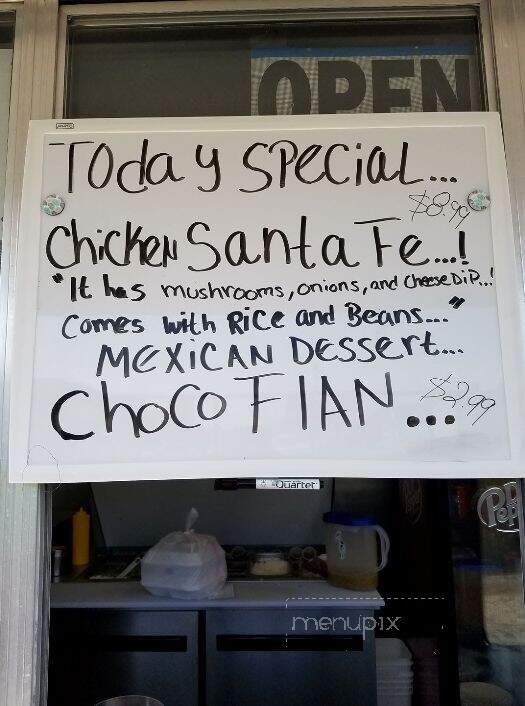 OPEN
TODAY SPECIAL...
$8.99
Chicken Santa Fe...!
"It has mushrooms, onions, and cheese DiP...!
Comes with Rice and Beans..."
MEXICAN DESSERT...
Choco FlAN... $2.99
Quartet
Pep
menupix